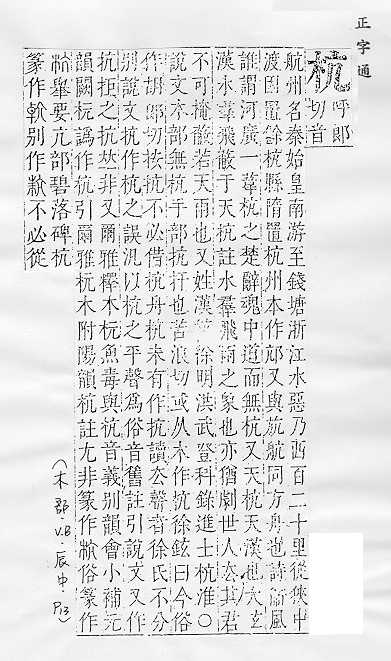 正字通
杭 呼郎
切音
航州名秦始皇南游至錢塘浙江水惡乃西百二十里從俠中
渡因置餘杭縣隋置杭州本作邟又與斻航同方舟也詩衞風
誰謂河廣一葦杭之楚辭魂中道而無杭又天杭天漢也太玄
漢水羣飛蔽于天杭註水羣飛雨之象也亦猶劇世人去其君
不可掩蔽若天雨也又姓漢徐明洪武登科錄進士杭淮○
說文木部無杭手部抗扞也苦浪切或从木作杭徐鉉曰今俗
作胡郎切按杭不必借杭舟杭未有作抗讀去聲者徐氏不分
別說文抗作杭之誤汎以杭之平聲爲俗音舊註引說文又作
抗拒之抗𠀤非又爾雅釋木杬魚毒與杭音義別韻會小補元
韻闕杬譌作杭引爾雅杬木附陽韻杭註尤非篆作斻俗篆作
舉要亢部碧落碑杭
篆作斻別作不必從
(木部.VB.辰中.P13)